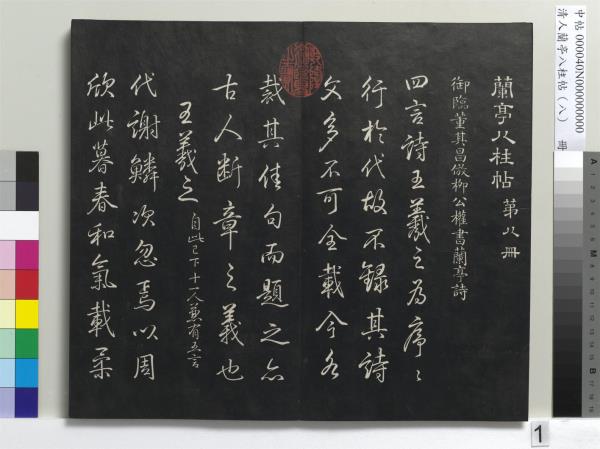 蘭亭八柱帖 第八冊
御臨董其昌倣柳公權書蘭亭詩
四言詩王羲之為序〻
行於代故不錄其詩
文多不可全載今各
裁其佳句而題之亦
古人断章之義也
王羲之 自此已下十一人兼有五言
代謝鱗次忽焉以周
欣此暮春和氣載柔
中帖 000040N000000000
清人蘭亭八柱帖(八) 冊
1